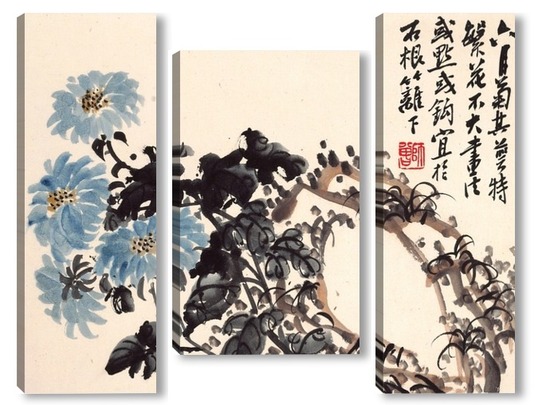 六月菊其萼特
繁花不大畫法
或點或鈎宜於
石根籬下